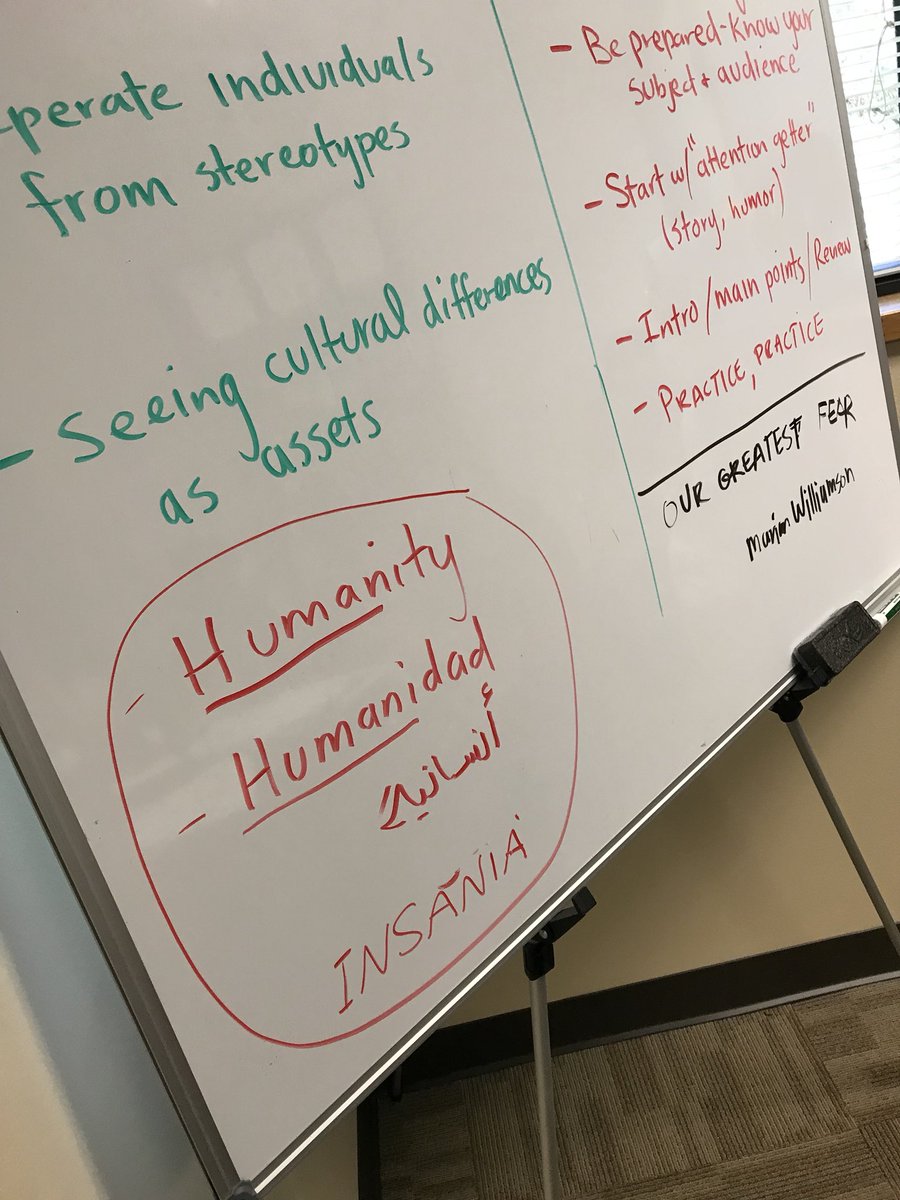 -perate individuals
from stereotypes
- Seeing cultural differences
as assets
- Humanity
- Humanidad
أنسانية
INSĀNIA
- Be prepared-know your
subject & audience
- Start w/ "attention getter"
(story, humor)
- Intro/main points/Review
- PRACTICE, PRACTICE
OUR GREATEST FEAR
Williamson